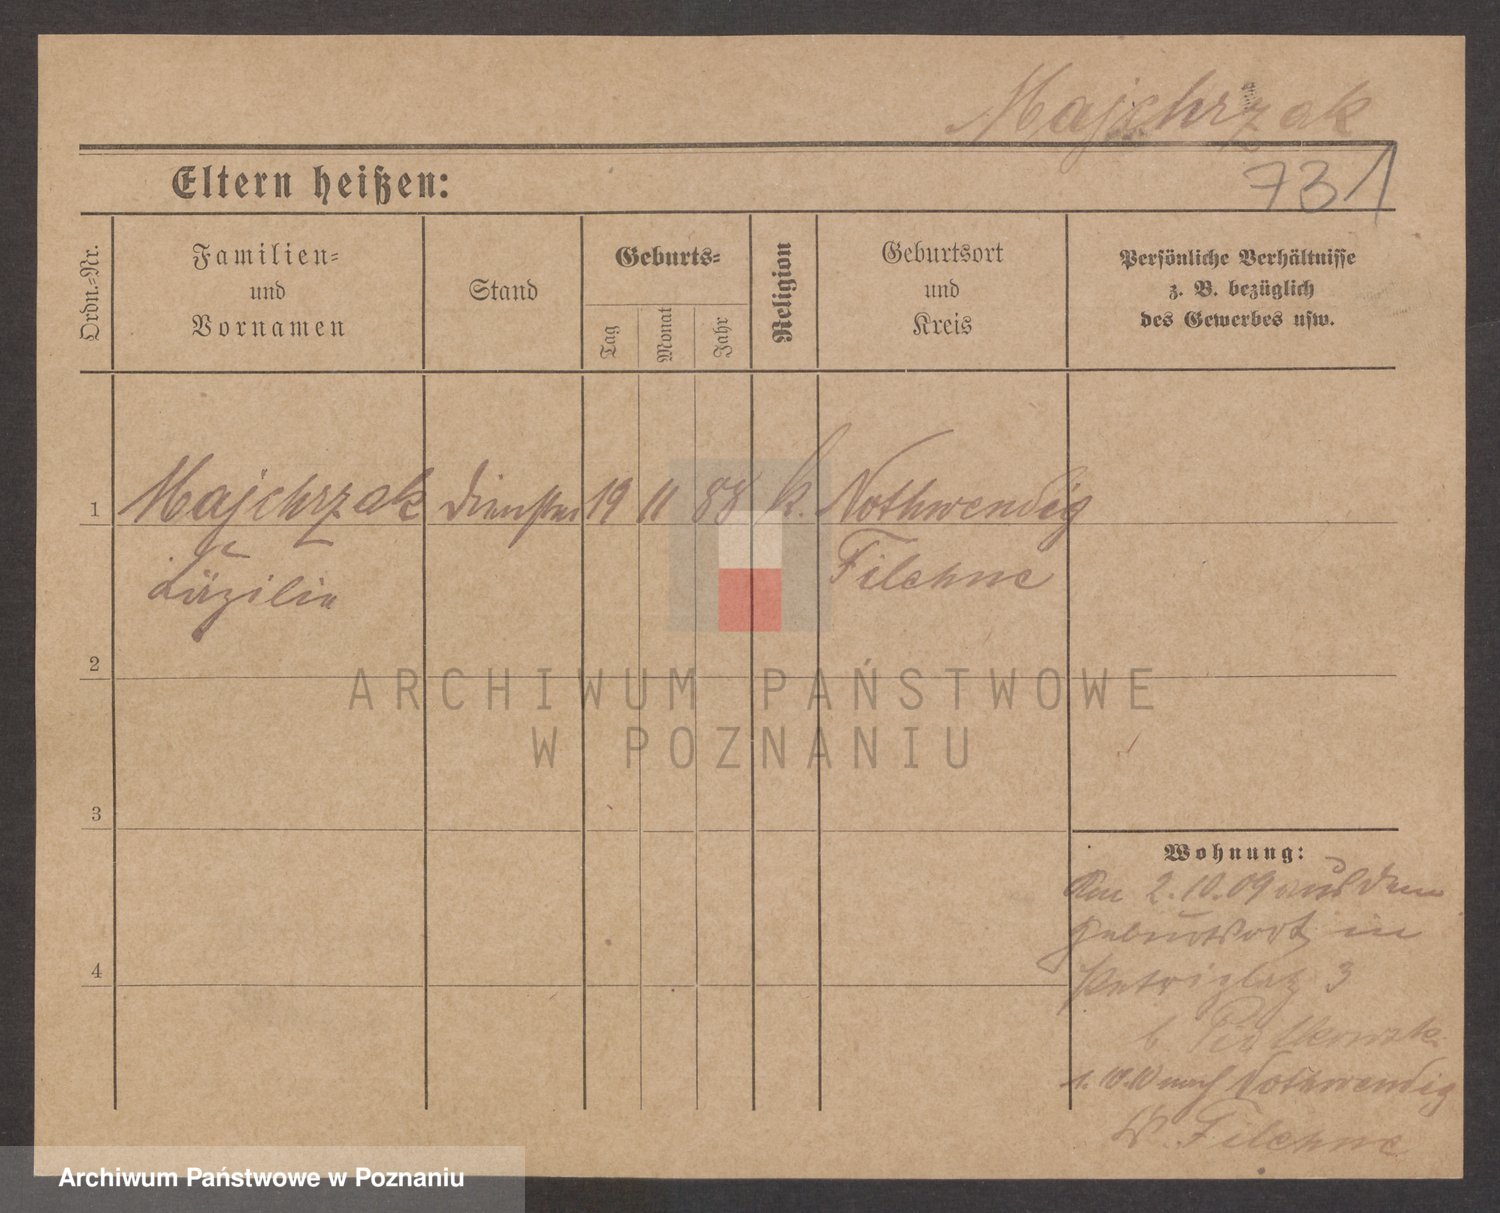 Majchrzak
731
Eltern heißen:
Ordn.=Nr.
Familien=
und
Vornamen
Stand
Geburts=
Tag
Monat
Jahr
Religion
Geburtsort
und
Kreis
Persönliche Verhältnisse
z. B. bezüglich
des Gewerbes usw.
1 Majchrzak 19 11 88 k. Nothwendig
Cäzilie Filehne
2
3
4
Wohnung:
2.10.09 aus dem
Geburtsort in
Petriplatz 3
b.
1.10.10 nach Nothwendig
Filehne
ARCHIWUM PAŃSTWOWE
W POZNANIU
Archiwum Państwowe w Poznaniu